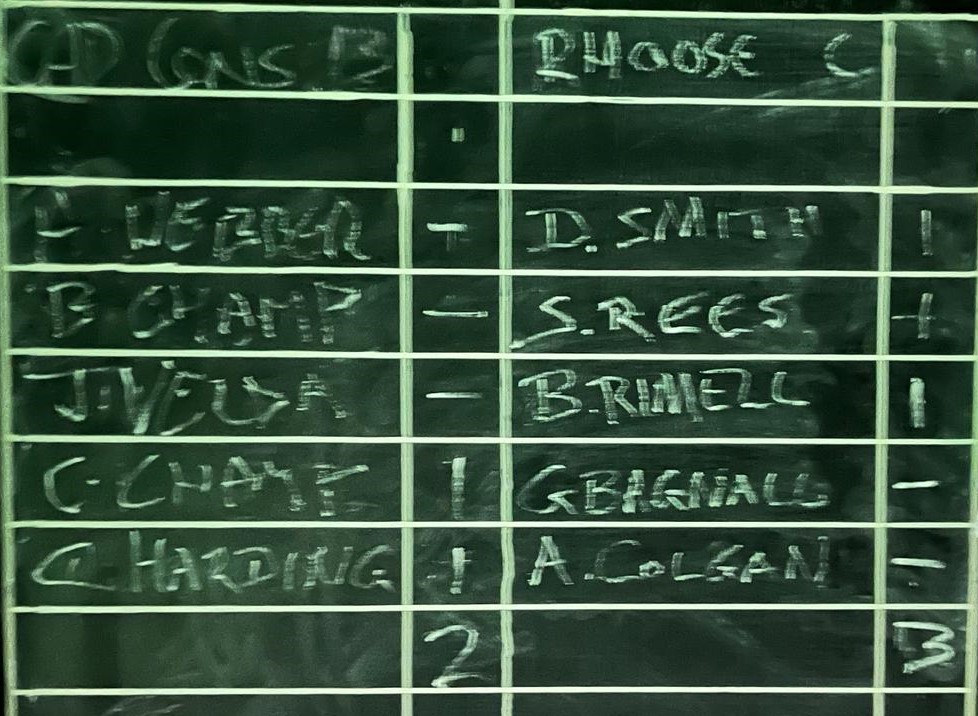 CD CONS B PHOOSE C
F. WEBBER - D. SMITH 1
B CHAMP - S. REES 1
J. VELLA - B. RIMELL 1
C. CHAMP 1 G BAGNALL -
C. HARDING 1 A. COLGAN -
2 3